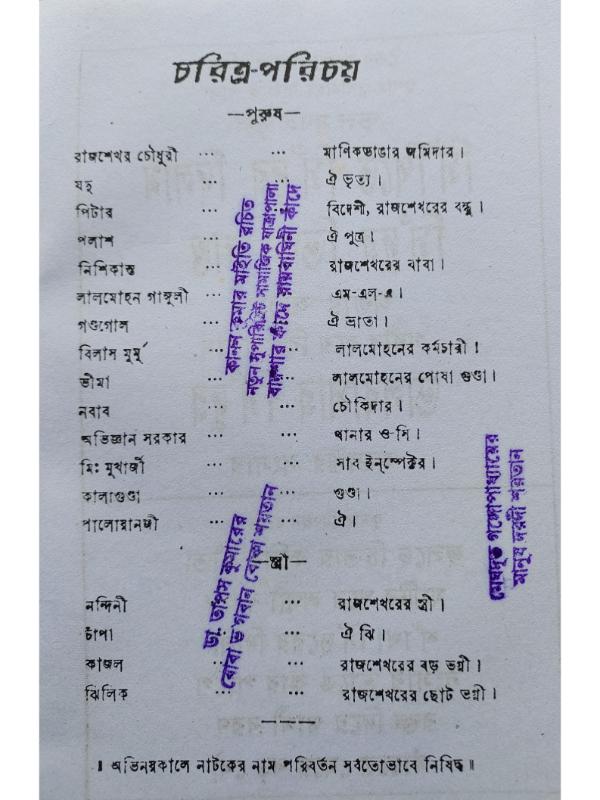 চরিত্র-পরিচয়
—পুরুষ—
রাজশেখর চৌধুরী ... ... মাণিকডাঙার জমিদার।
যদু ... ... ঐ ভৃত্য।
পিটার ... ... বিদেশী, রাজশেখরের বন্ধু।
পলাশ ... ... ঐ পুত্র।
নিশিকান্ত ... ... রাজশেখরের বাবা।
লালমোহন গাঙ্গুলী ... ... এম-এল-এ।
গণ্ডগোল ... ... ঐ ভ্রাতা।
বিলাস মুর্মু ... ... লালমোহনের কর্মচারী।
ভীমা ... ... লালমোহনের পোষা গুণ্ডা।
নবাব ... ... চৌকিদার।
অভিজ্ঞান সরকার ... ... থানার ও-সি।
মিঃ মুখার্জী ... ... সাব ইন্‌স্পেক্টর।
কালাগুণ্ডা ... ... গুণ্ডা।
পালোয়ানজী ... ... ঐ।
—স্ত্রী—
নন্দিনী ... ... রাজশেখরের স্ত্রী।
চাঁপা ... ... ঐ ঝি।
কাজল ... ... রাজশেখরের বড় ভগ্নী।
ঝিলিক ... ... রাজশেখরের ছোট ভগ্নী।
॥ অভিনয়কালে নাটকের নাম পরিবর্তন সর্বতোভাবে নিষিদ্ধ॥
কানন কুমার মাইতি রচিত
নতুন সুপারহিট সামাজিক যাত্রাপালা
কাঁদে রায়বাঘিনী কাঁদে
ডা. তাপস কুমারের
বোবা ভগবান বোকা শয়তান
মেঘদূত গঙ্গোপাধ্যায়ের
মানুষ দরদী শয়তান